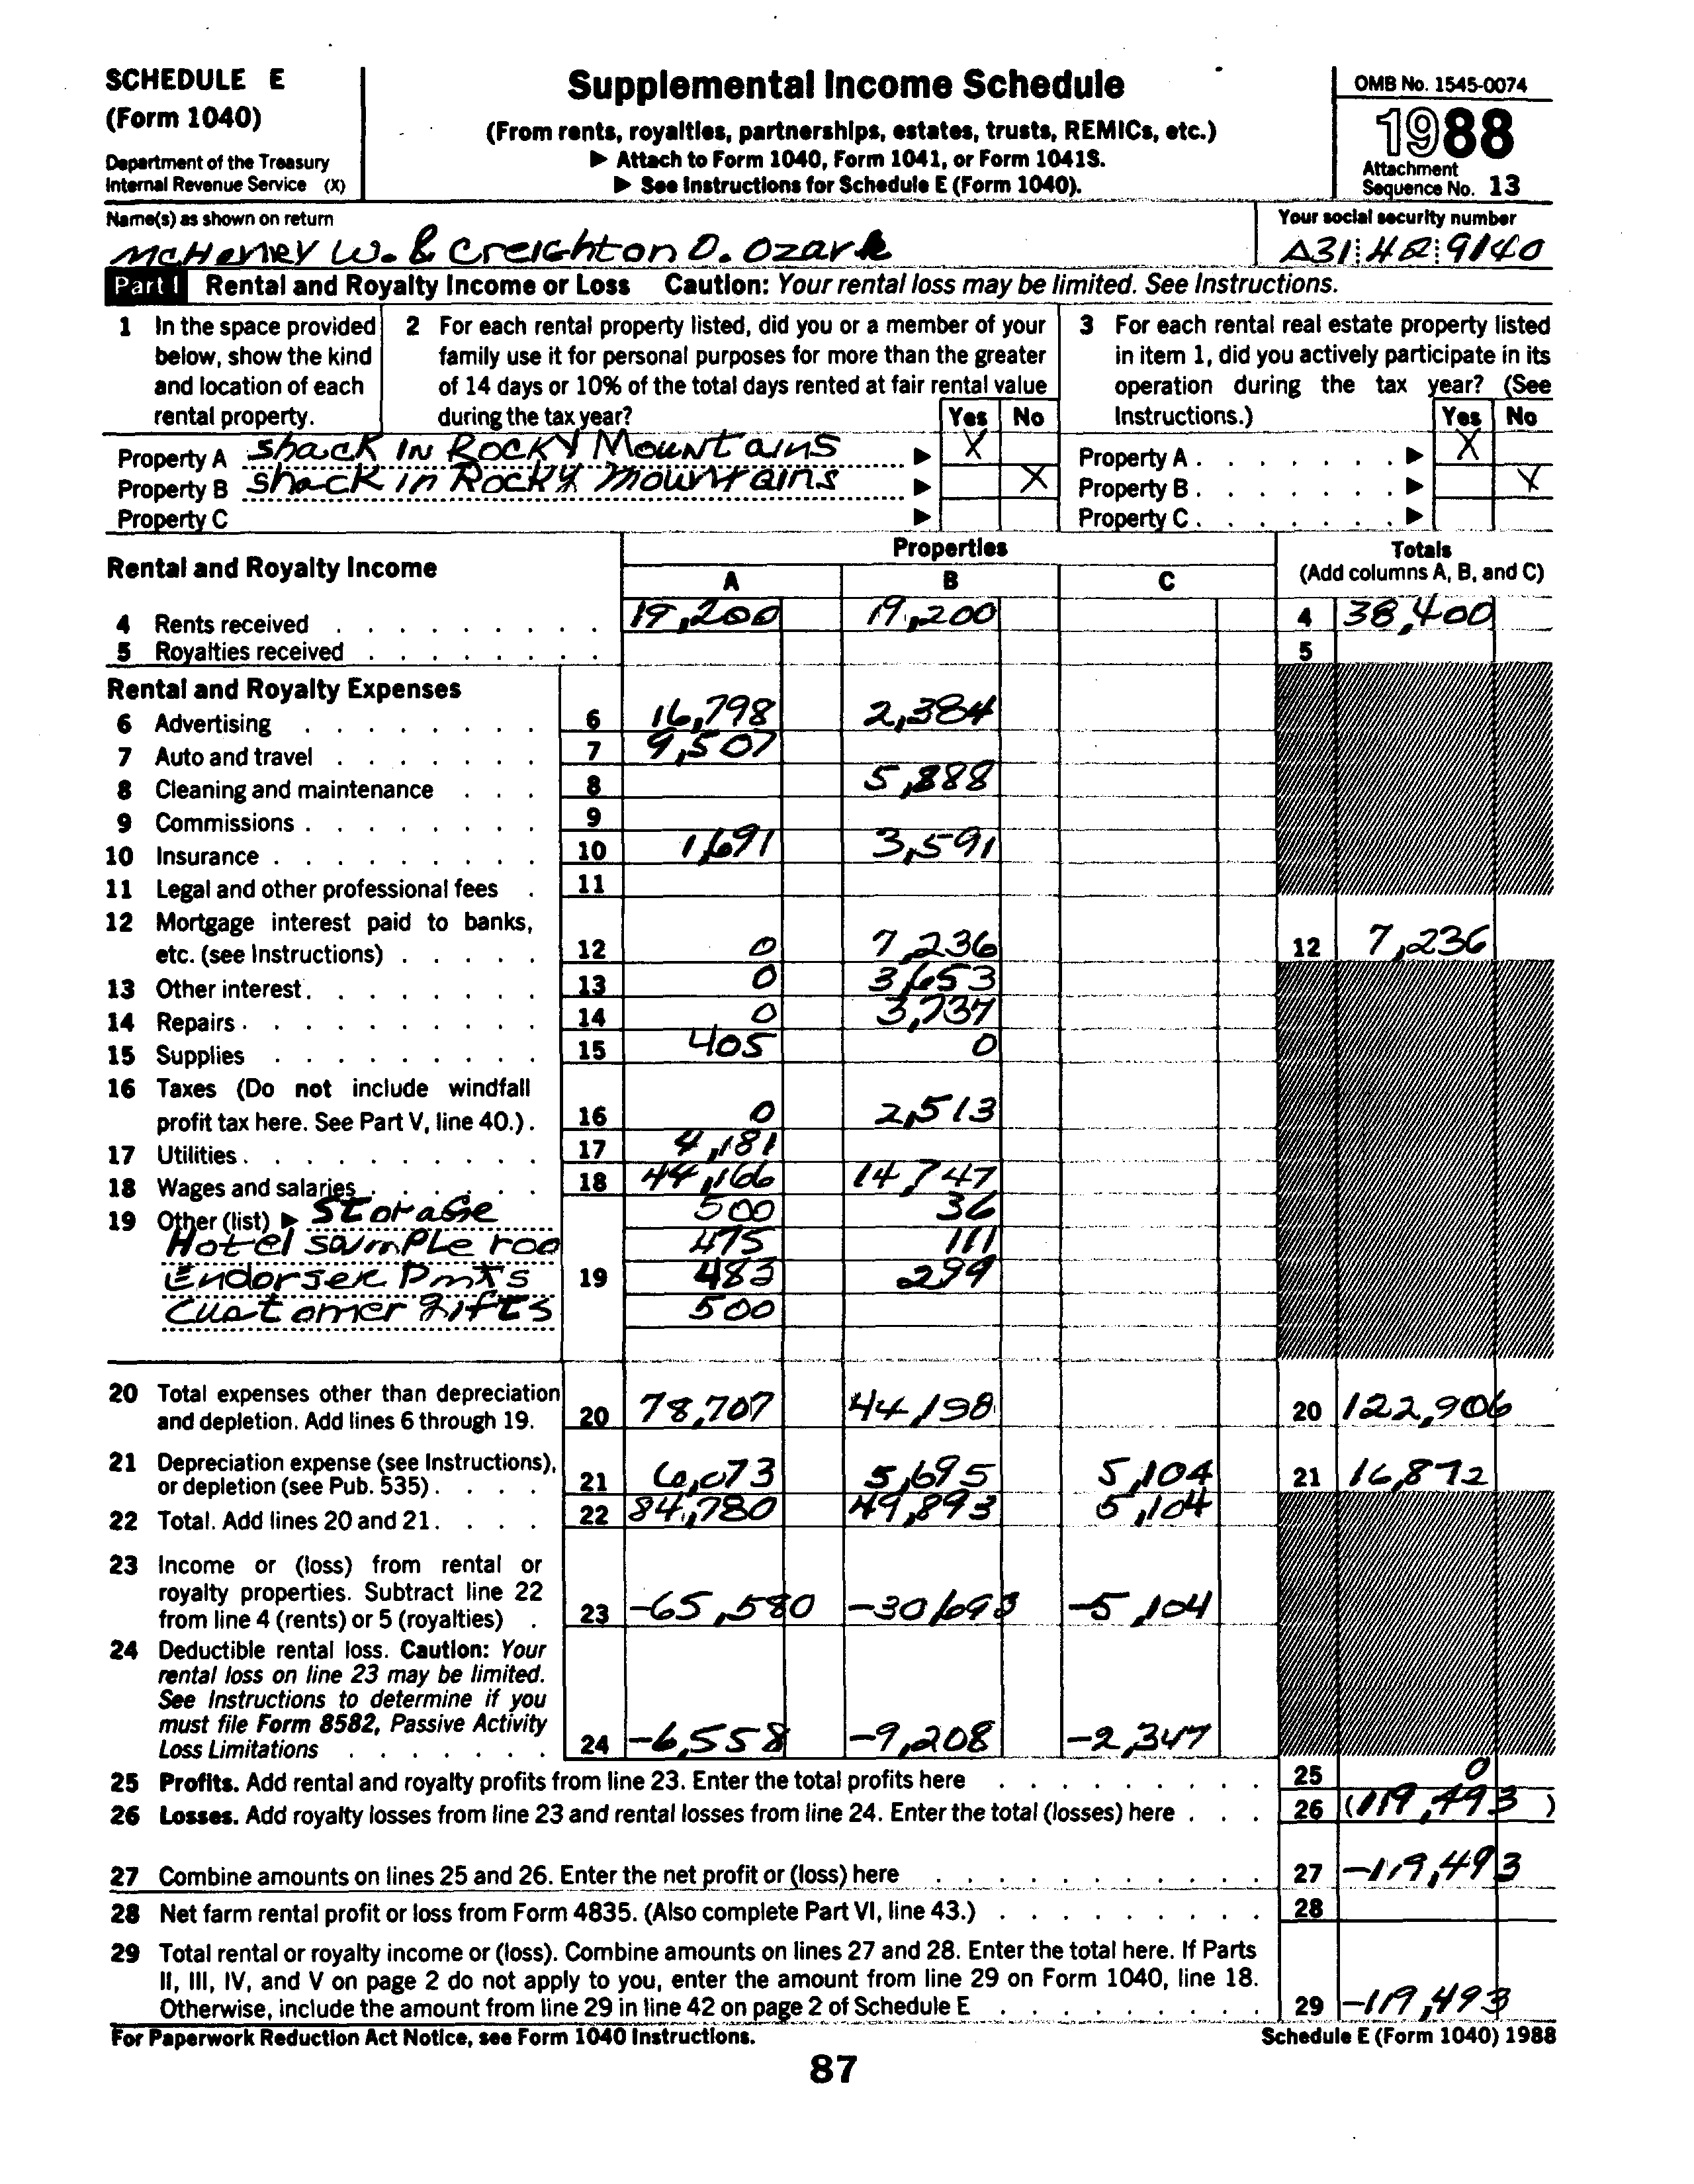 SCHEDULE E
(Form 1040)
Department of the Treasury
Internal Revenue Service (X)
Supplemental Income Schedule
(From rents, royalties, partnerships, estates, trusts, REMICs, etc.)
▶ Attach to Form 1040, Form 1041, or Form 1041S.
▶ See Instructions for Schedule E (Form 1040).
OMB No. 1545-0074
1988
Attachment
Sequence No. 13
Name(s) as shown on return
McHenry W. & Creighton D. Ozark
Your social security number
A31 42 9140
Part I Rental and Royalty Income or Loss Caution: Your rental loss may be limited. See Instructions.
1 In the space provided
below, show the kind
and location of each
rental property.
2 For each rental property listed, did you or a member of your
family use it for personal purposes for more than the greater
of 14 days or 10% of the total days rented at fair rental value
during the tax year? Yes No
3 For each rental real estate property listed
in item 1, did you actively participate in its
operation during the tax year? (See
Instructions.) Yes No
Property A shack in Rocky Mountains ▶ X
Property A ▶ X
Property B shack in Rocky mountains ▶ X
Property B ▶ X
Property C ▶
Property C ▶
Rental and Royalty Income
Properties
A B C
Totals
(Add columns A, B, and C)
4 Rents received 19,200 19,200 4 38,400
5 Royalties received 5
Rental and Royalty Expenses
6 Advertising 6 16,798 2,384
7 Auto and travel 7 9,507
8 Cleaning and maintenance 8 5,888
9 Commissions 9
10 Insurance 10 1,691 3,591
11 Legal and other professional fees 11
12 Mortgage interest paid to banks,
etc. (see Instructions) 12 0 7,236 12 7,236
13 Other interest 13 0 3,653
14 Repairs 14 0 3,737
15 Supplies 15 405 0
16 Taxes (Do not include windfall
profit tax here. See Part V, line 40.) 16 0 2,513
17 Utilities 17 4,181
18 Wages and salaries 18 44,166 14,747
19 Other (list) ▶ Storage 500 36
Hotel sample roo 475 111
Endorsee Pmts 19 483 299
Customer gifts 500
20 Total expenses other than depreciation
and depletion. Add lines 6 through 19. 20 78,707 44,198 20 122,906
21 Depreciation expense (see Instructions),
or depletion (see Pub. 535) 21 6,073 5,695 5,104 21 16,872
22 Total. Add lines 20 and 21 22 84,780 49,893 5,104
23 Income or (loss) from rental or
royalty properties. Subtract line 22
from line 4 (rents) or 5 (royalties) 23 -65,580 -30,693 -5,104
24 Deductible rental loss. Caution: Your
rental loss on line 23 may be limited.
See Instructions to determine if you
must file Form 8582, Passive Activity
Loss Limitations 24 -6,558 -9,208 -2,347
25 Profits. Add rental and royalty profits from line 23. Enter the total profits here 25 0
26 Losses. Add royalty losses from line 23 and rental losses from line 24. Enter the total (losses) here 26 (119,493)
27 Combine amounts on lines 25 and 26. Enter the net profit or (loss) here 27 -119,493
28 Net farm rental profit or loss from Form 4835. (Also complete Part VI, line 43.) 28
29 Total rental or royalty income or (loss). Combine amounts on lines 27 and 28. Enter the total here. If Parts
II, III, IV, and V on page 2 do not apply to you, enter the amount from line 29 on Form 1040, line 18.
Otherwise, include the amount from line 29 in line 42 on page 2 of Schedule E 29 -119,493
For Paperwork Reduction Act Notice, see Form 1040 Instructions.
Schedule E (Form 1040) 1988
87